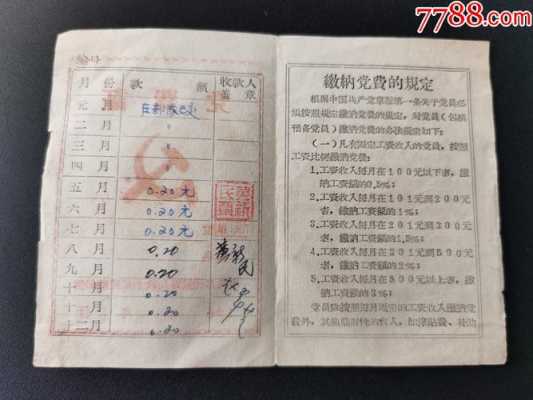 7788.com
中国收藏热线
月 份 款 额 收款人盖章
元 月 在部队已交
二 月 〃
三 月 〃
四 月 〃
五 月 0.20元
六 月 0.20元
七 月 0.20元
八 月 0.20
九 月 0.20
十 月 0.20
十一月 0.20
十二月 0.20
缴纳党费的规定
根据中国共产党章程第一条关于党员必
须按照规定缴纳党费的规定，对党员（包括
预备党员）缴纳党费的办法规定如下：
（一）凡有固定工资收入的党员，按照
工资比例缴纳党费：
1.工资收入每月在100元以下者，缴
纳工资额的0.5%；
2.工资收入每月在101元到200元
者，缴纳工资额的1%；
3.工资收入每月在201元到300元
者，缴纳工资额的1.5%；
4.工资收入每月在301元到500元
者，缴纳工资额的2%；
5.工资收入每月在500元以上者，缴
纳工资额的3%；
党员除按照每月固定的工资收入缴纳党
费外，其他临时性的收入，如津贴费、补助